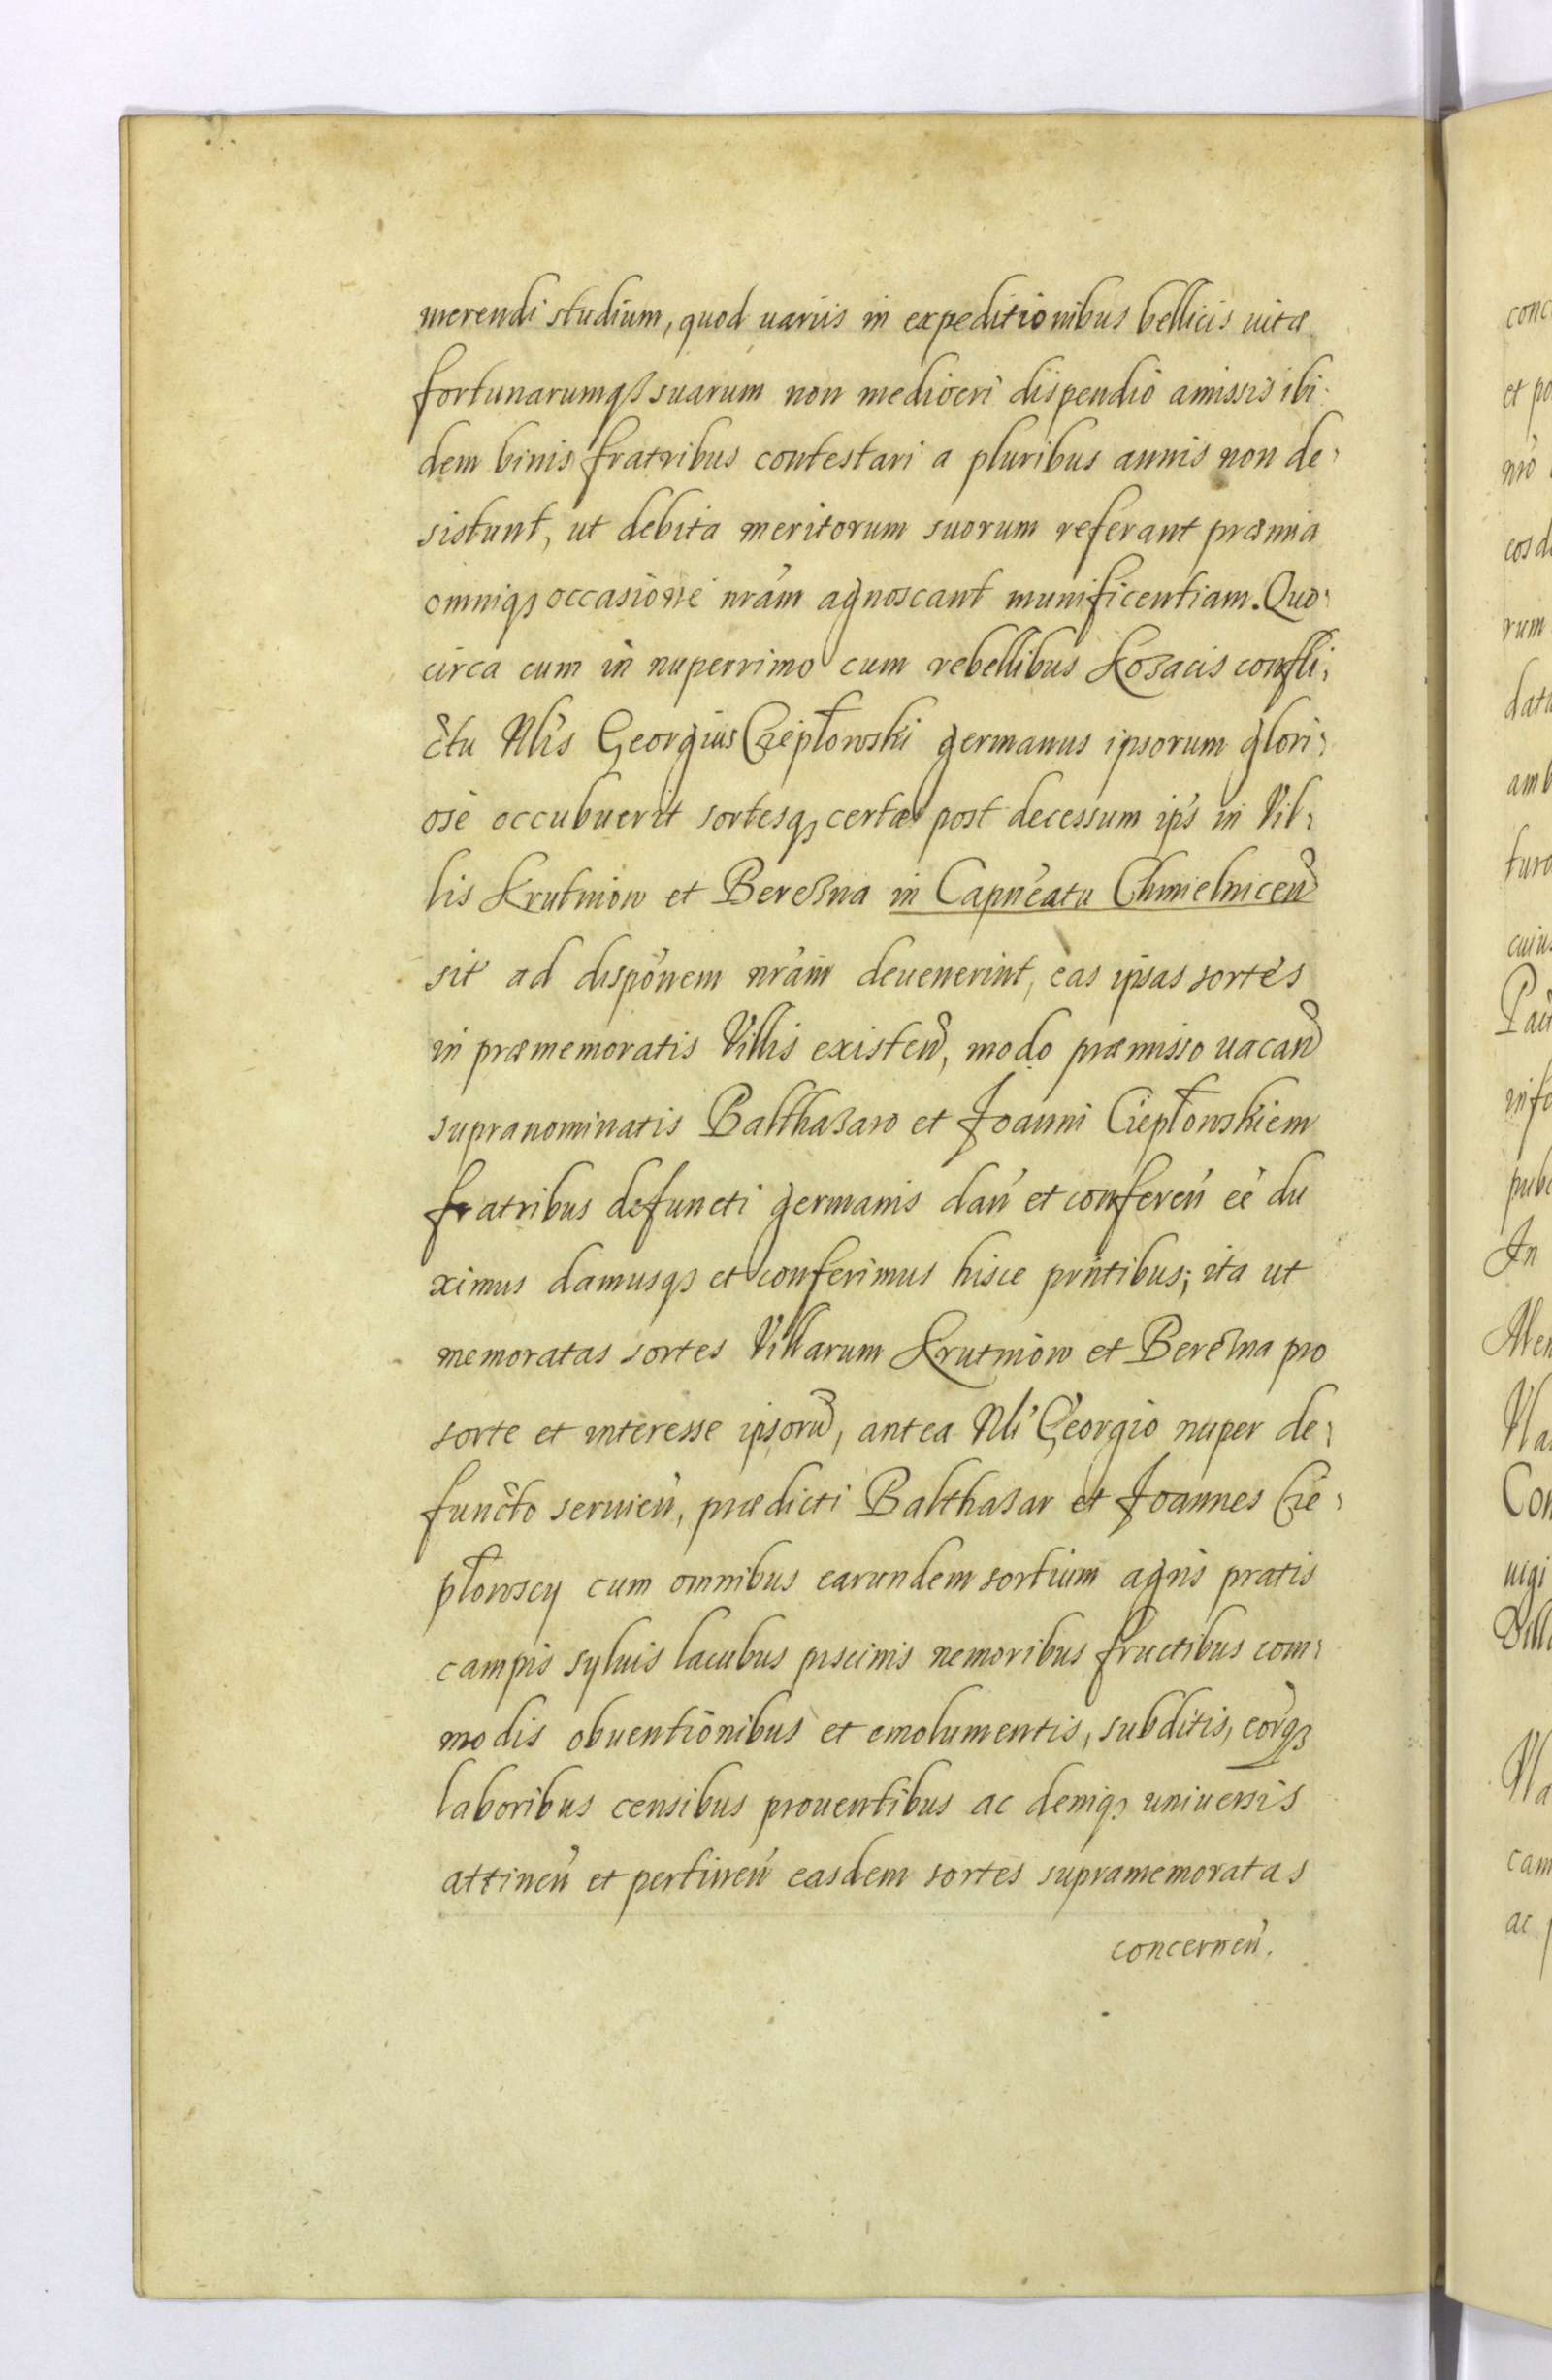 merendi studium, quod uariis in expeditionibus bellicis uitæ
fortunarumqȝ suarum non mediocri dispendio amissis ibi
dem binis fratribus contestari a pluribus annis non de,
sistunt, ut debita meritorum suorum referant præmia
omniqȝ occasione nr̃am agnoscant munificentiam. Quo,
circa cum in nuperrimo cum rebellibus Kozacis confli,
ctu Nlis Georgius Cziepłowski germanus ipsorum glori,
ose occubuerit sortesqȝ certæ post decessum ip̃s in Vil,
lis Krutniow et Berezna in Capñeatu Chmielnicen̄
sit ad dispõnem nr̃am deuenerint, eas ipsas sortes
in præmemoratis Villis existen̄, modo præmisso uacan̄
supranominatis Balthazaro et Joanni Ciepłowskiem
fratribus defuncti germanis dan̄ et conferen̄ eẽ du
ximus damusqȝ et conferimus hisce prñtibus; ita ut
memoratas sortes Villarum Krutniow et Berezna pro
sorte et interesse ipsorū, antea Nli Georgio nuper de,
functo seruien̄, prædicti Balthazar et Joannes Czie,
płowscy cum omnibus earundem sortium agris pratis
campis syluis lacubus piscinis nemoribus fructibus com,
modis obuentionibus et emolumentis, subditis, eor̃qȝ
laboribus censibus prouentibus ac deniqȝ uniuersis
attinen̄ et pertinen̄ easdem sortes supramemoratas
concernen̄.